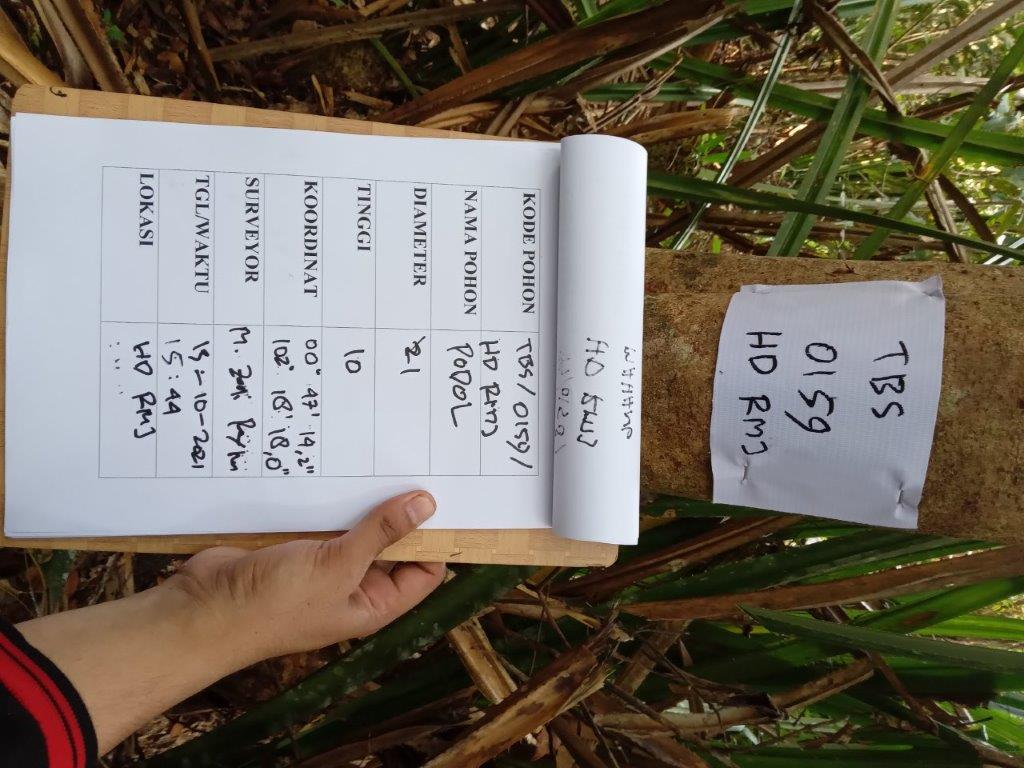 TBS
0159
HD RMJ
KODE POHON TBS/ 0159/
HD RMJ
NAMA POHON PODOL
DIAMETER 21
TINGGI 10
KOORDINAT 00° 47' 14,2"
102° 18' 18,0"
SURVEYOR M.
TGL/WAKTU -10-2021
15:44
LOKASI HD RMJ